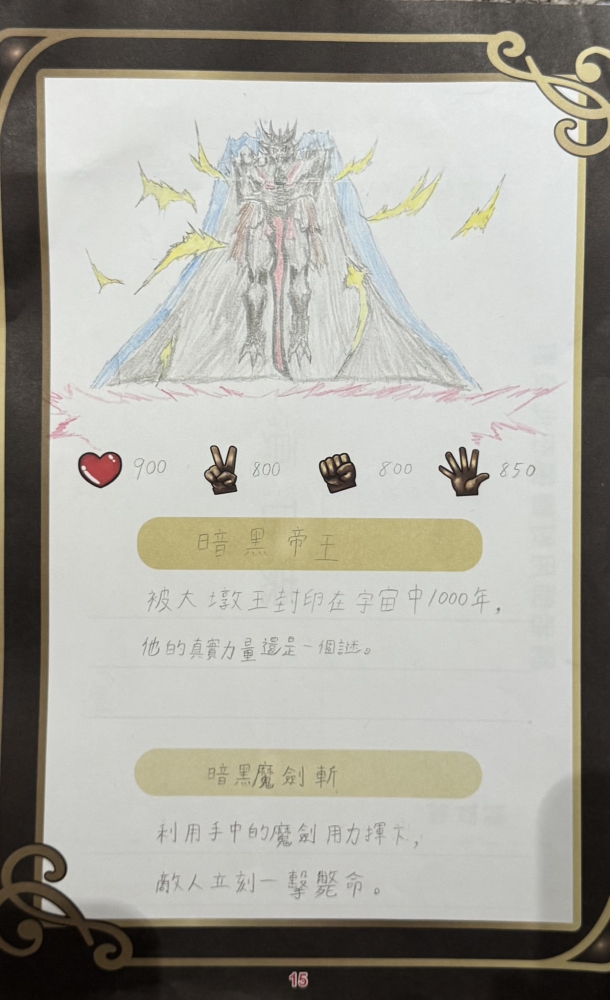 900 800 800 850
暗黑帝王
被大墩王封印在宇宙中1000年,
他的真實力量還是一個謎。
暗黑魔劍斬
利用手中的魔劍用力揮下,
敵人立刻一擊斃命。
15